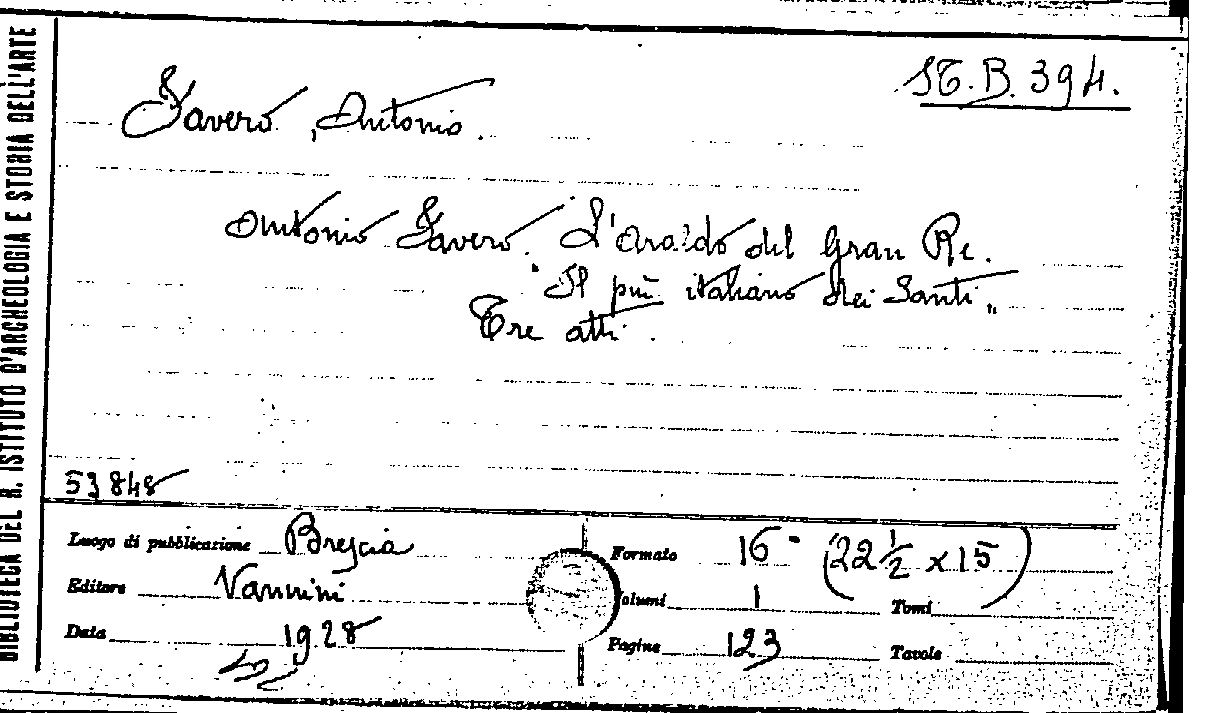 BIBLIOTECA DEL R. ISTITUTO D'ARCHEOLOGIA E STORIA DELL'ARTE
ST.B.394.
Favero, Antonio.
Antonio Favero. L'Araldo del Gran Re.
"Il più italiano dei Santi„
Tre atti.
53848
Luogo di pubblicazione Brescia
Formato 16° (22 ½ x 15)
Editore Vannini
Volumi 1 Tomi
Data 1928
Pagine 123 Tavole